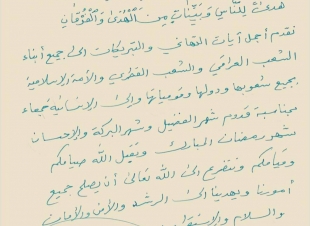 هدىً للناس وبينات من الهدى والفرقان
نقدم أجمل آيات التهاني والتبريكات الى جميع أبناء
الشعب العراقي والشعب القطري والأمة الاسلامية
بجميع شعوبها ودولها وقومياتها والى الانسانية جمعاء
بمناسبة قدوم شهر الفضيل وشهر البركة والإحسان
شهر رمضان المبارك وتقبل الله صيامكم
وقيامكم ونتضرع الى الله تعالى أن يصلح جميع
أمورنا ويهدينا الى الرشد والأمن والأمان
والسلام والاستقرار